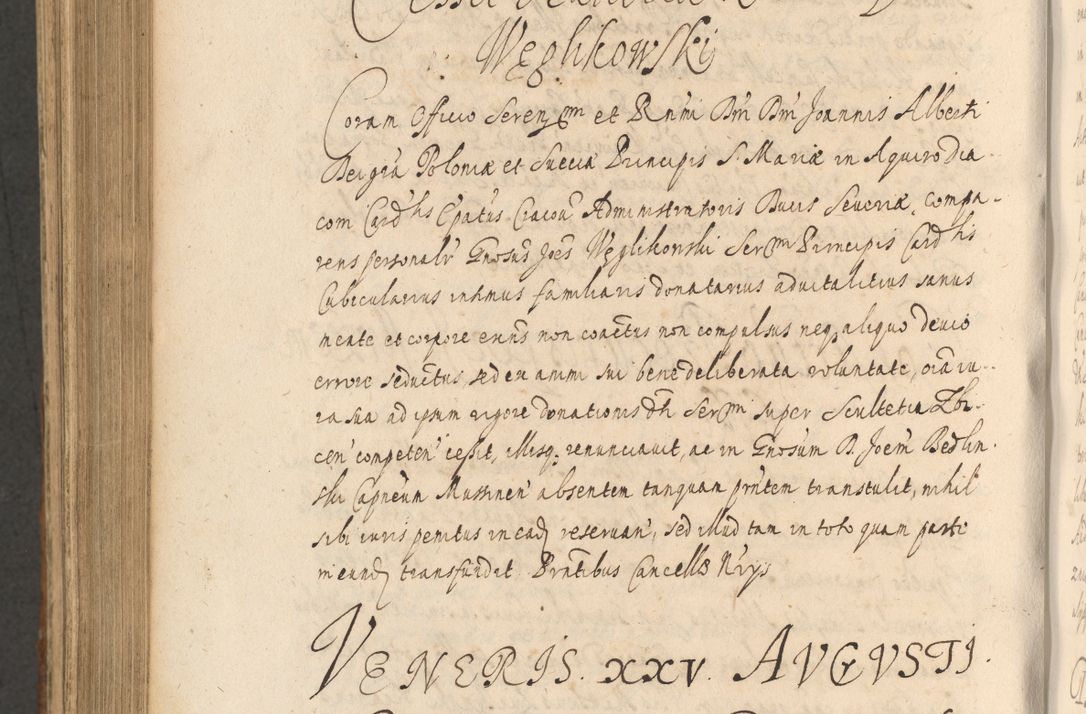 Węglikowskij
Coram Officio Sereñm et Rn̄mi Dn̄i Dn̄i Joannis Alberti
Dei gr̄a Poloniæ et Sueciæ Principis S. Mariæ in Aquiro Dia-
coni Card̄lis Ep̄atus Cracoū Administratoris Ducis Severiæ, compa-
rens personalr̄ Gn̄osus Joēs Węglikowski Ser̄m Principis Card̄lis
Cubicularius intimus familiaris donatarius advitalitius sanus
mente et corpore exn̄s non coactus non compulsus neq, aliquo devio
errore seductus, sed ex animi sui bene deliberata voluntate, oīa iu-
ra sua ad ipsum vigore donationis d̄ti Ser̄mi super Scultetia Zbi-
cen̄ competen̄ cessit, illisq, renunciavit, ac in Gn̄osum D. Joēm Bedlin-
ski Capn̄eum Mussinen̄ absentem tanquam pn̄tem transtulit, nihil
sibi iuris penitus in ead, reservan̄, sed illud tam in toto quam parte
in eund, transfundit. Pn̄tibus Cancell̄ Nr̄ijs
VENERIS. XXV. AVGVSTI.